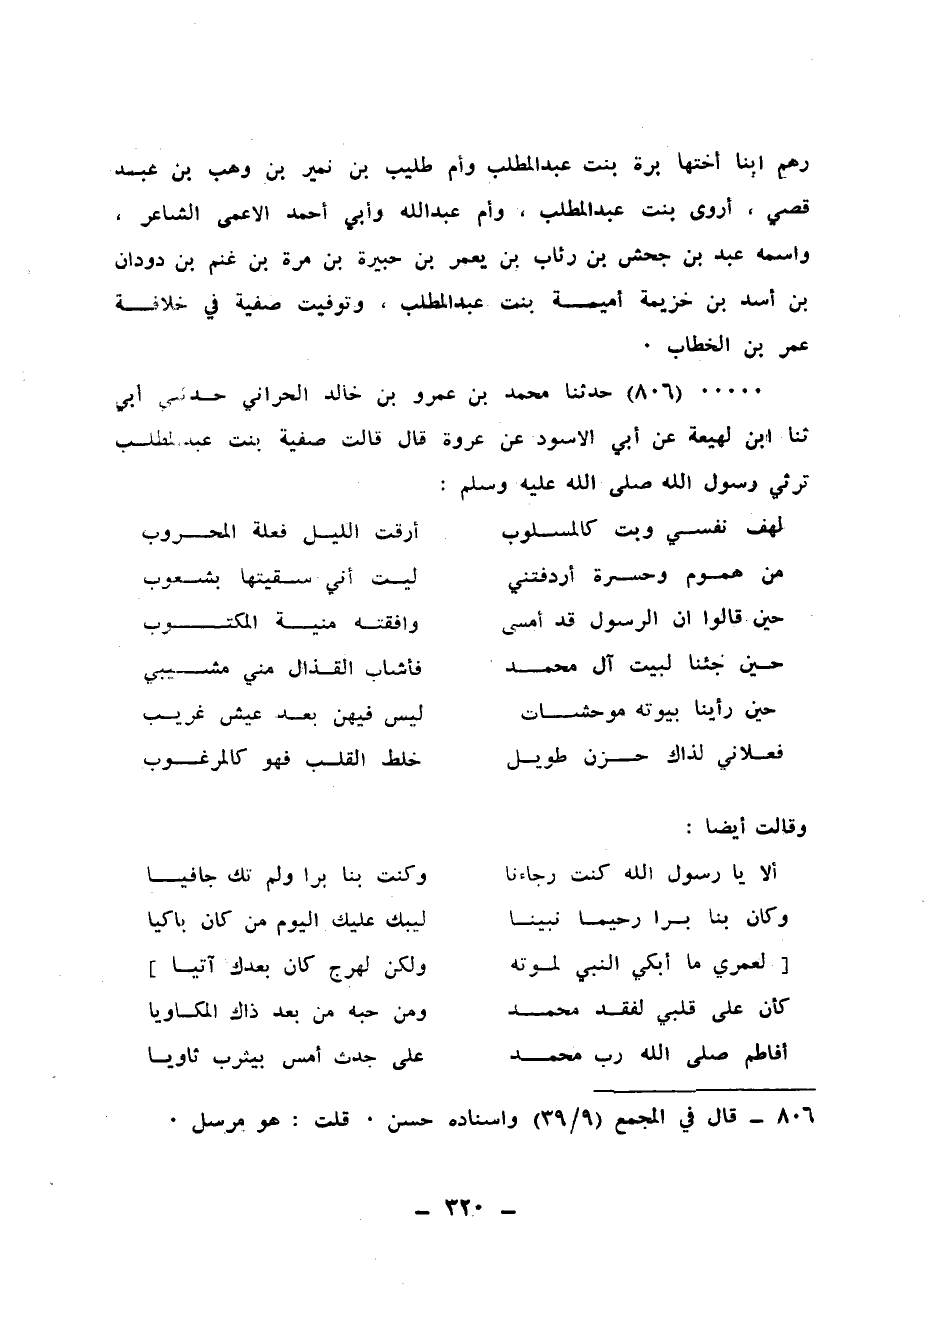 رهم ابنا أختها برة بنت عبدالمطلب وأم طليب بن نمير بن وهب بن عبـد
قصي ، أروى بنت عبدالمطلب ، وأم عبدالله وأبي أحمد الاعمى الشاعر ،
واسمه عبد بن جحش بن رئاب بن يعمر بن حبيرة بن مرة بن غنم بن دودان
بن أسد بن خزيمة أميمـــة بنت عبدالمطلب ، وتوفيت صفية في خلافــة
عمر بن الخطاب ٠
٠٠٠٠٠ (٨٠٦) حدثنا محمد بن عمرو بن خالد الحراني حـدثني أبي
ثنا ابن لهيعة عن أبي الاسود عن عروة قال قالت صفية بنت عبدالمطلـب
ترثي رسول الله صلى الله عليه وسلم :
لهف نفســي وبت كالمسـلوب أرقت الليـل فعلة المحــروب
من همـوم وحسـرة أردفتني ليـت أني سـقيتها بشـعوب
حين قالوا ان الرسول قد أمسى وافقتـه منيــة المكتــــوب
حـين جئنا لبيت آل محمــد فأشاب القـذال مني مشــيبي
حين رأينا بيوته موحشــات ليس فيهن بعـد عيش غريـب
فعـلاني لذاك حــزن طويـل خلط القلـب فهو كالمرغـوب
وقالت أيضا :
ألا يا رسول الله كنت رجاءنا وكنت بنا برا ولم تك جافيــا
وكان بنا بـرا رحيمـا نبينـا ليبك عليك اليوم من كان باكيا
[ لعمري ما أبكي النبي لمـوته ولكن لهرج كان بعدك آتيـا ]
كأن على قلبي لفقـد محمــد ومن حبه من بعد ذاك المكـاويا
أفاطم صلى الله رب محمــد على جدث أمس بيثرب ثاويـا
٨٠٦ ــ قال في المجمع (٣٩/٩) واسناده حسن ٠ قلت : هو مرسل ٠
ــ ٣٢٠ ــ